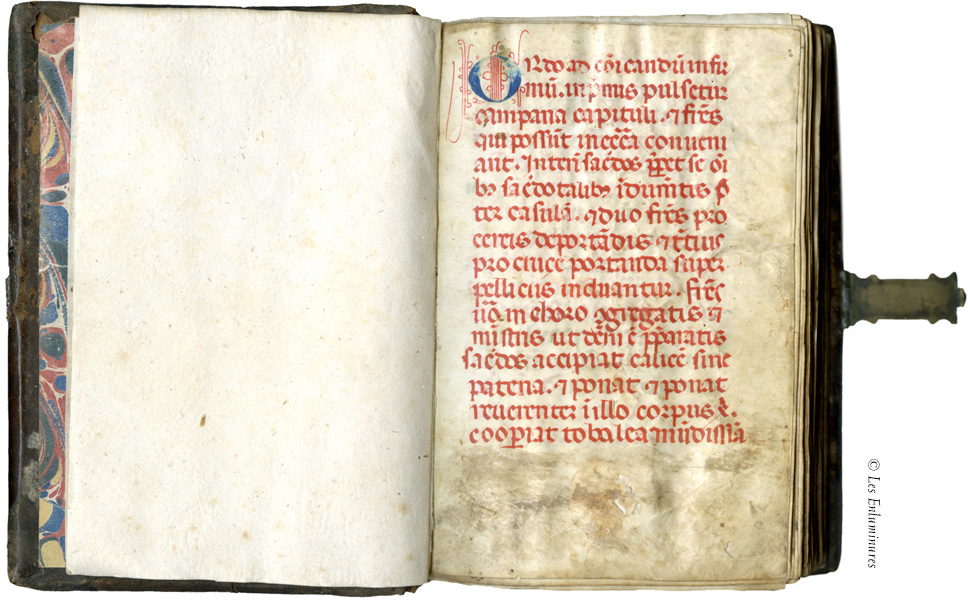 ORdo ad cōicandū infir
mū. in pͥmis pulsetur
campana capituli. ⁊ fr̄es
qui possūt in eccͣa conueni
ant. Interī sac̄dos p̄ꝑet se oī
bꝫ sac̄dotalibꝫ īdum̄tis p̄
ter casulā. ⁊ duo fr̄es pro
cereis deportādis ⁊ t̄tius
pro cruce portanda super
pelliceis induantur. fr̄es
uō in choro ꝯgregatis ⁊
mīstris ut dc̄m ē p̄paratis
sac̄dos accipiat calicē sine
patena. ⁊ ponat ⁊ ponat
reuerenter ī illo corpus x̄.
cooꝑiat tobalea mūdissīā
© Les Enluminures